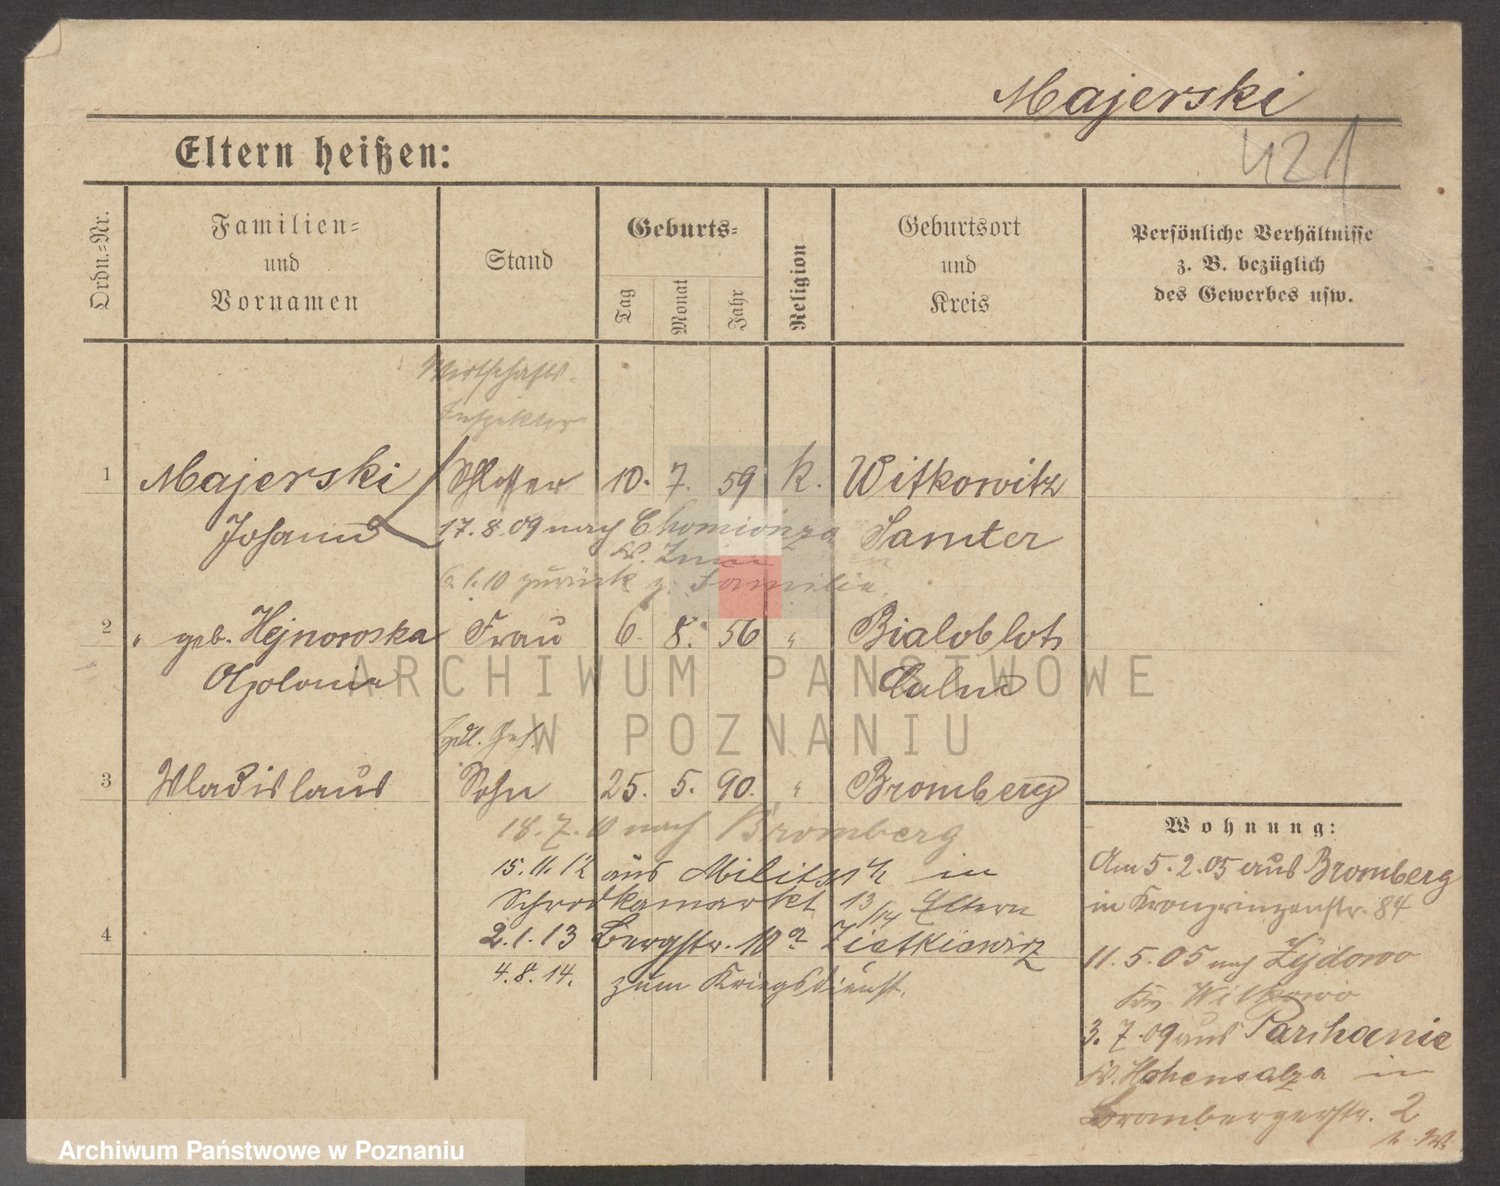 Majerski
421
Eltern heißen:
Ordn.-Nr.
Familien-
und
Vornamen
Stand
Geburts-
Tag
Monat
Jahr
Religion
Geburtsort
und
Kreis
Persönliche Verhältnisse
z. B. bezüglich
des Gewerbes usw.
Wirtschafts-
Inspektor
1 Majerski Schlosser 10. 7. 59 k. Witkowitz
Johann 17.8.09 nach Chomionza Samter
Kr. Znin
6.1.10 zurück z. Familie.
2 " geb. Hejnowska Frau 6. 8. 56 " Bialoblott
Apolonia Culm
ARCHIWUM PAŃSTWOWE
W POZNANIU
Hdl. Geh.
3 Wladislaus Sohn 25. 5. 90. " Bromberg
18.7.10 nach Bromberg
15.11.12 aus in
Schrodkamarkt 13/14 Eltern
4 2.1.13 Bergstr. 10a Zietkiewicz
4.8.14. zum Kriegsdienst.
Wohnung:
Am 5.2.05 aus Bromberg
in Kronprinzenstr. 84
11.5.05 nach Zydowo
Krs Witkowo
3.7.09 aus Parchanie
Kr. Hohensalza in
Brombergerstr. 2
Archiwum Państwowe w Poznaniu